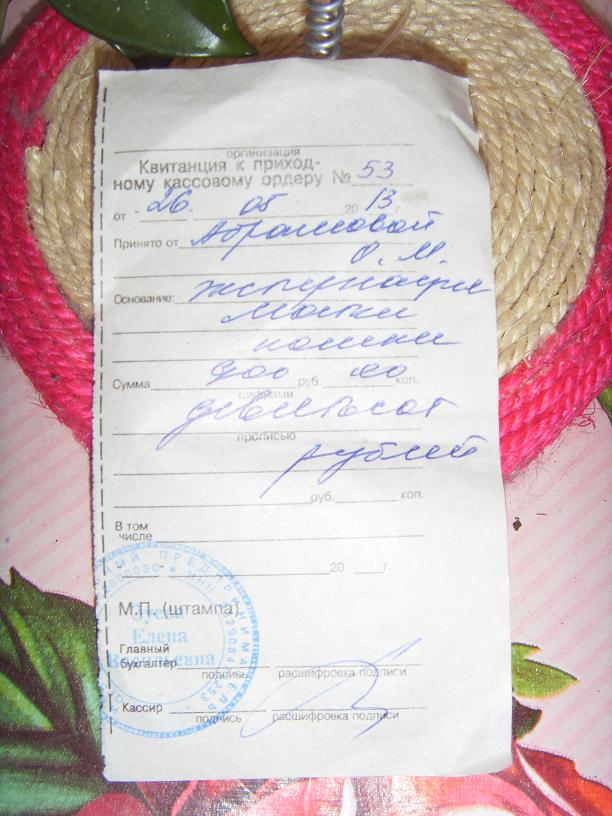 организация
Квитанция к приход-
ному кассовому ордеру № 53
от 26 05 2013 г.
Принято от Абрамовой
О. М.
Основание:
кошки
Сумма 900 руб. 00 коп.
цифрами
девятьсот
прописью
рублей
руб. коп.
В том
числе
20 г.
М.П. (штампа)
Зуева
Елена
Васильевна
ПРЕДПРИНИМАТЕЛЬ
ИНН
Главный
бухгалтер
подпись расшифровка подписи
Кассир
подпись расшифровка подписи